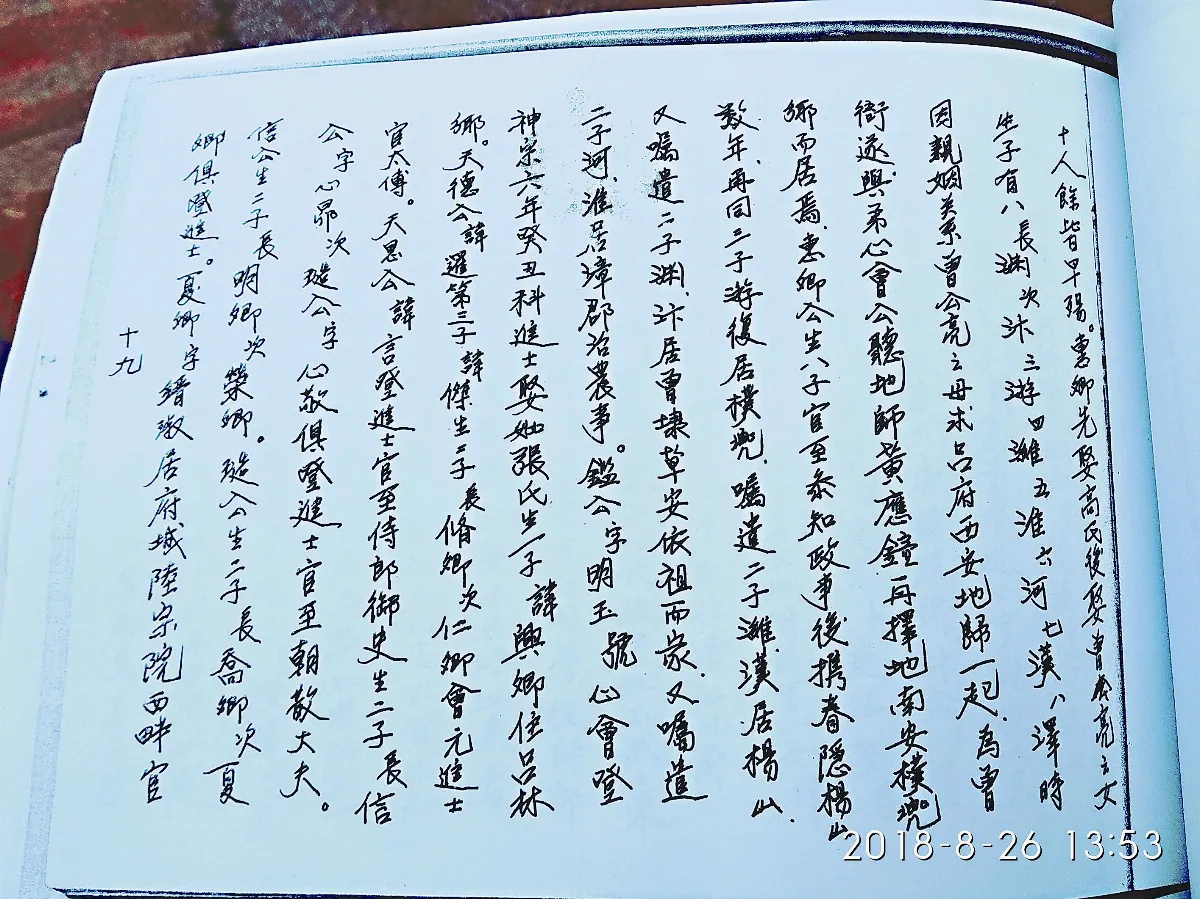 十人餘皆早殤。惠卿先娶高氏後娶曾公亮之女
生子有八長渊次汴三游四濰五淮六河七漢八澤時
因親姻关系曾公亮之母求吕府西安地歸一起、為曾
衙遂與弟心會公聽地師黄應鐘再擇地南安樸兜
鄉而居焉、惠卿公生八子官至叅知政事後携眷隐楊山
数年、再回三子游復居樸兜、嘱遣二子濰、漢居楊山、
又嘱遣二子渊、汴居曾埭草安依祖而家、又嘱遣
二子河、淮居漳郡治農事。鑑公字明玉號心會登
神宗六年癸丑科進士娶妣張氏生一子諱興卿住吕林
鄉。天德公諱邏第三子諱傑生二子長脩卿次仁卿會元進士
官太傅。天恩公諱言登進士官至侍郎御史生二子長信
公字心昴次琎公字心敬俱登進士官至朝散大夫。
信公生二子長明卿次榮卿。琎公生二子長喬卿次夏
卿俱登進士。夏卿字縉叔居府城陸宗院西畔官
十九
2018-8-26 13:53